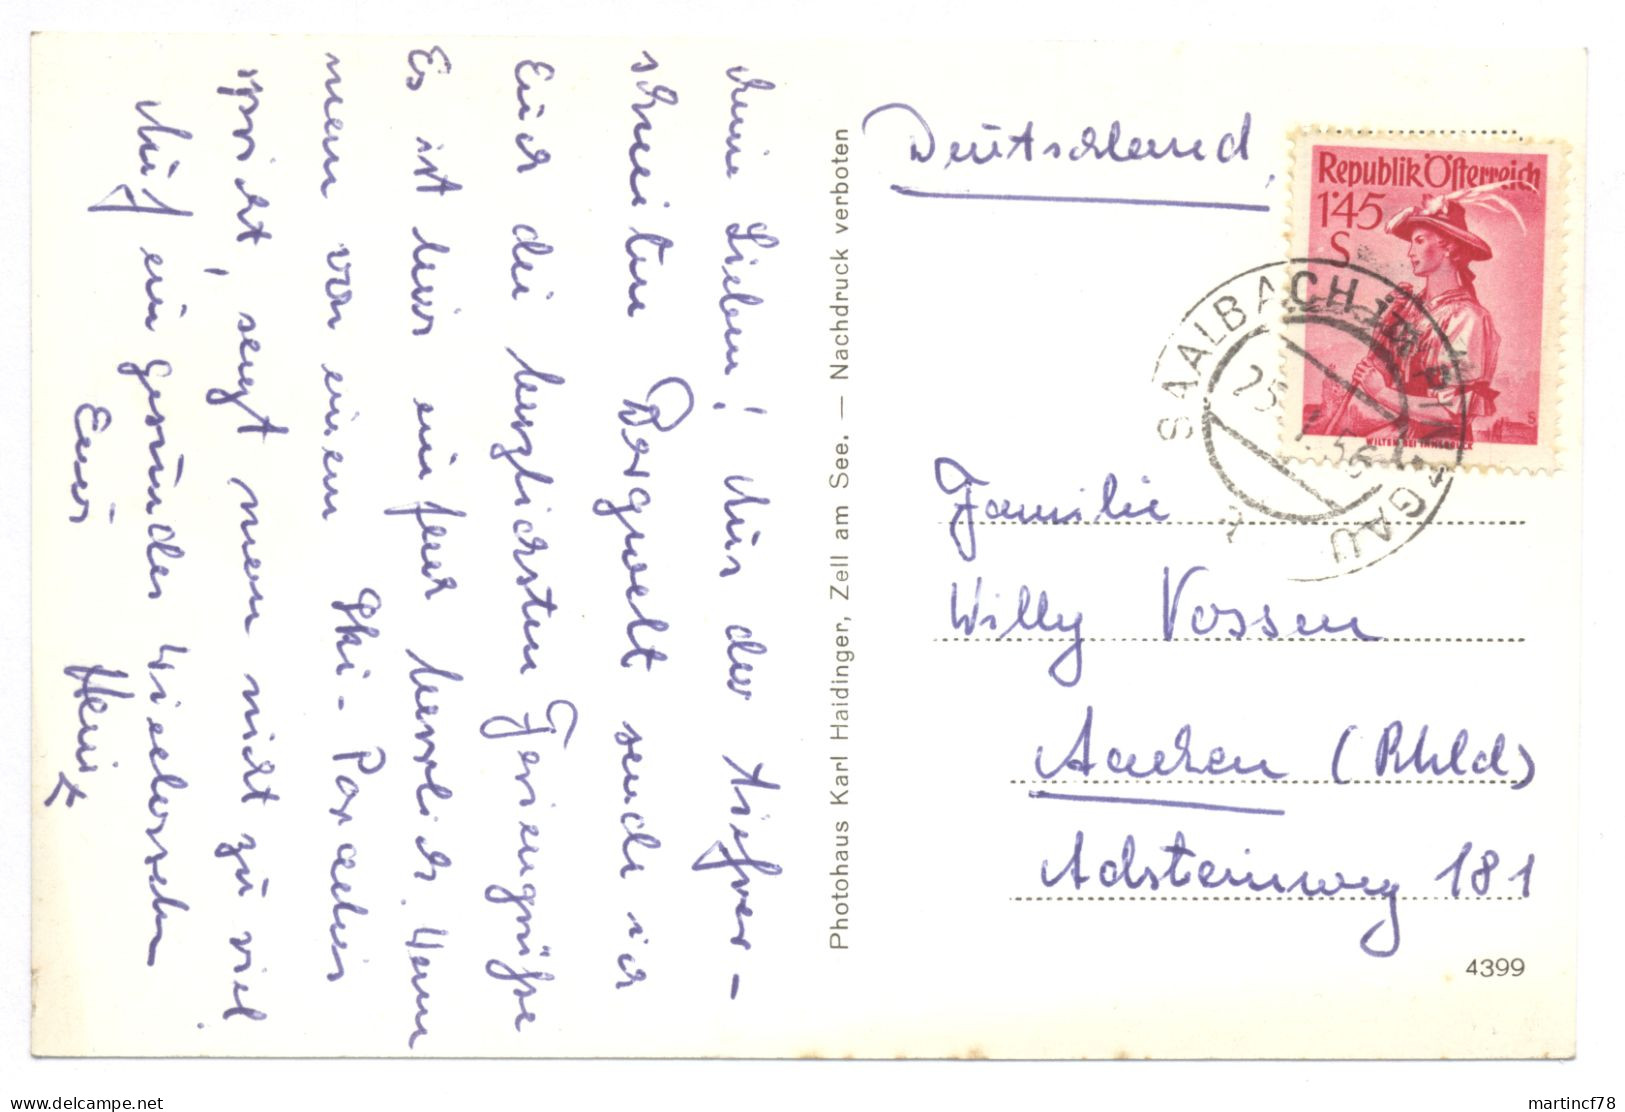 Meine Lieben! Aus der tiefver-
schneiten Bergwelt sende ich
Euch die herzlichsten Feriengrüße
Es ist hier einfach herrlich. Wenn
man von einem Ski-Paradies
spricht, sagt man nicht zu viel.
Auf ein gesundes Wiedersehen
Euer Heinz
Photohaus Karl Haidinger, Zell am See. — Nachdruck verboten
Deutschland
Republik Österreich
1'45
S
WILTEN BEI INNSBRUCK
SAALBACH im PINZGAU
1
Familie
Willy Vossen
Aachen (Rhld)
Adsteinweg 181
4399
delcampe.net
martincf78